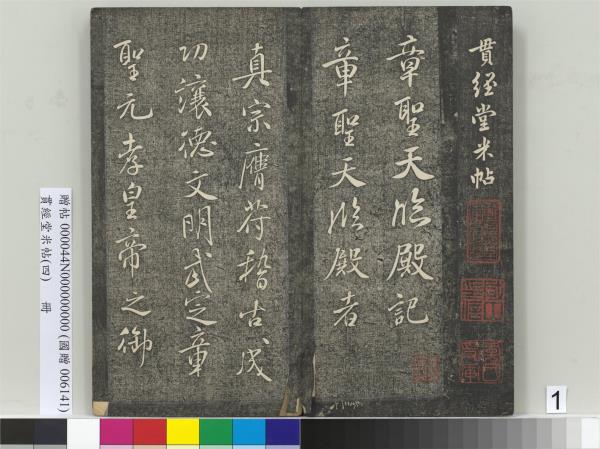 貫經堂米帖
章聖天臨殿記
章聖天臨殿者
真宗膺符稽古成
功讓德文明武定章
聖元孝皇帝之御
贈帖 000044N000000000 (國贈 006141)
貫經堂米帖(四) 冊
1